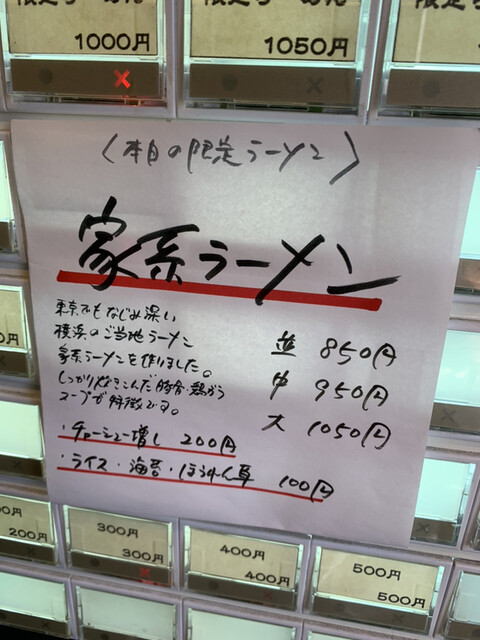 1000円
1050円
〈本日の限定ラーメン〉
家系ラーメン
東京でもなじみ深い
横浜のご当地ラーメン
家系ラーメンを作りました。
しっかり炊きこんだ豚骨・鶏がら
スープが特徴です。
並 850円
中 950円
大 1050円
・チャーシュー増し 200円
・ライス・海苔・ほうれん草 100円
200円
300円
300円
400円
400円
500円
500円